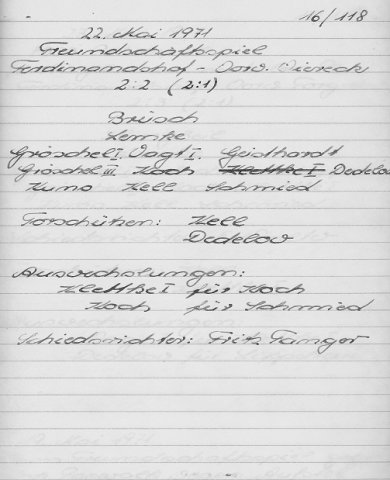 16/118
22. Mai 1971
Freundschaftsspiel
Ferdinandshof - Vorw. Viereck
2:2 (2:1)
Brüsch
Lemke
Gröschel I. Vogt I. Geishardt
Gröschel III Koch Klettke I Dedelow
Kuno Kell Schmied
Torschützen: Kell
Dedelow
Auswechslungen:
Klettke I für Koch
Koch für Schmied
Schiedsrichter: Fritz Tanger